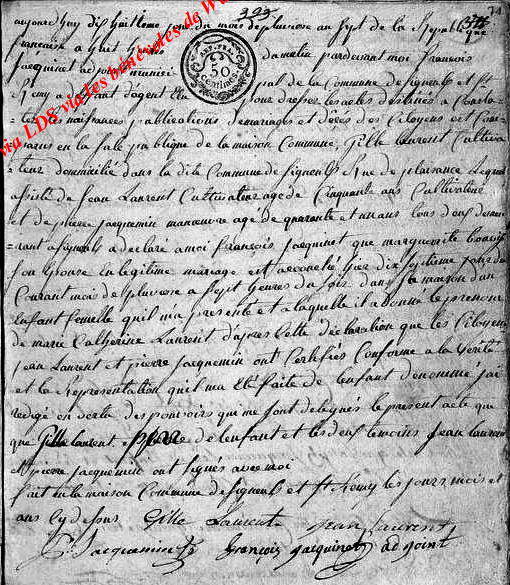 393
aujourdhuy dix huitieme jour du mois de pluviose an sept de la Republique
francaise a huit heures du matin pardevant moi francois
jacquinet adjoint municipal de la Commune de signeuls et st
Remy a defaut dagent Elu pour dresser les actes destinés a Consta
=ter les naissances publications de mariages et déces des Citoyens est Com=
=parus en la sale publique de la maison Commune, Gille Laurent Cultiva
=teur domicilié dans la dite Commune de signeuls Rue de plaisance Lequel
assisté de jean Laurent Cultivateur age de Cinquante ans Cultivateur
et de pierre jacquemin manœuvre age de quarante et un ans tous deux demeu
=rant a signeuls a declaré a moi françois jacquinet que marguerite
son Epouse en legitime mariage est accouchée hier dix septieme jour du
Courant mois de pluviose a sept heures du soir dans sa maison d'un
Enfant femelle qu'il ma présenté et a laquelle il a donné le prenom
de marie Catherine Laurent d'apres Cette déclaration que les Citoyens
jean Laurent et pierre jacquemin ont Certifiés Conforme a la Verité
et la Representation qu'il ma Eté faite de lenfant denommé jai
redigé en vertu des pouvoirs qui me sont delegués le present acte que
que Gille laurent pere de lenfant et les deux temoins jean laurent
et pierre jacquemin ont signés avec moi
fait en la maison Commune de signeuls et st Remy les jours mois et
ans cy dessus Gille Laurent jean Laurent
P. jacquemin françois jacquinet adjoint
REP. FRA.
50
centimes
via LDS via les bénévoles de